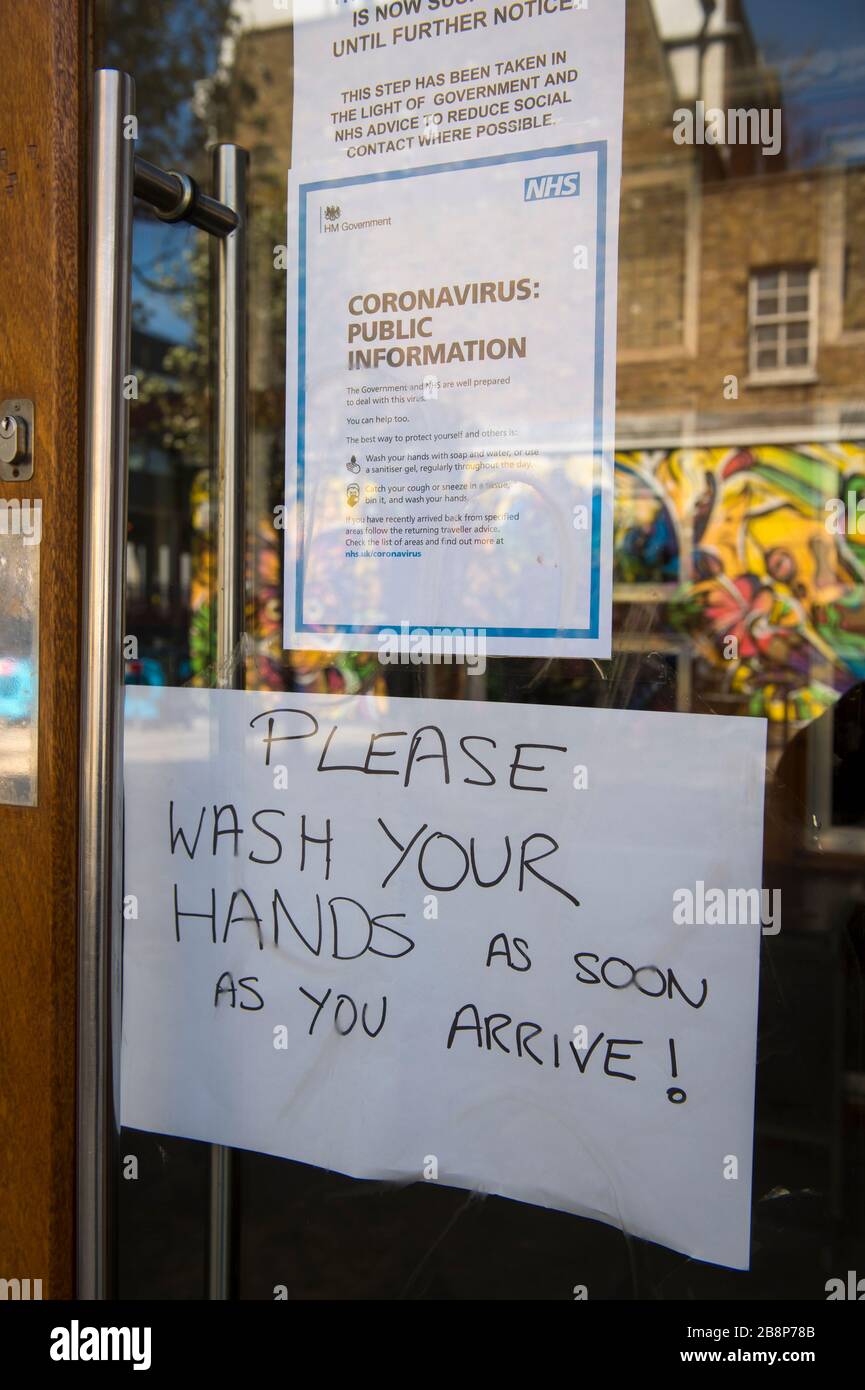 IS NOW
UNTIL FURTHER NOTICE
THIS STEP HAS BEEN TAKEN IN
THE LIGHT OF GOVERNMENT AND
NHS ADVICE TO REDUCE SOCIAL
CONTACT WHERE POSSIBLE.
NHS
HM Government
CORONAVIRUS:
PUBLIC
INFORMATION
The Government and NHS are well prepared
to deal with this virus.
You can help too.
The best way to protect yourself and others is:
Wash your hands with soap and water, or use
a sanitiser gel, regularly throughout the day.
Catch your cough or sneeze in a tissue,
bin it, and wash your hands.
If you have recently arrived back from specified
areas follow the returning traveller advice.
Check the list of areas and find out more at
nhs.uk/coronavirus
PLEASE
WASH YOUR
HANDS AS SOON
AS YOU ARRIVE!
alamy
a
Image ID: 2B8P78B
www.alamy.com